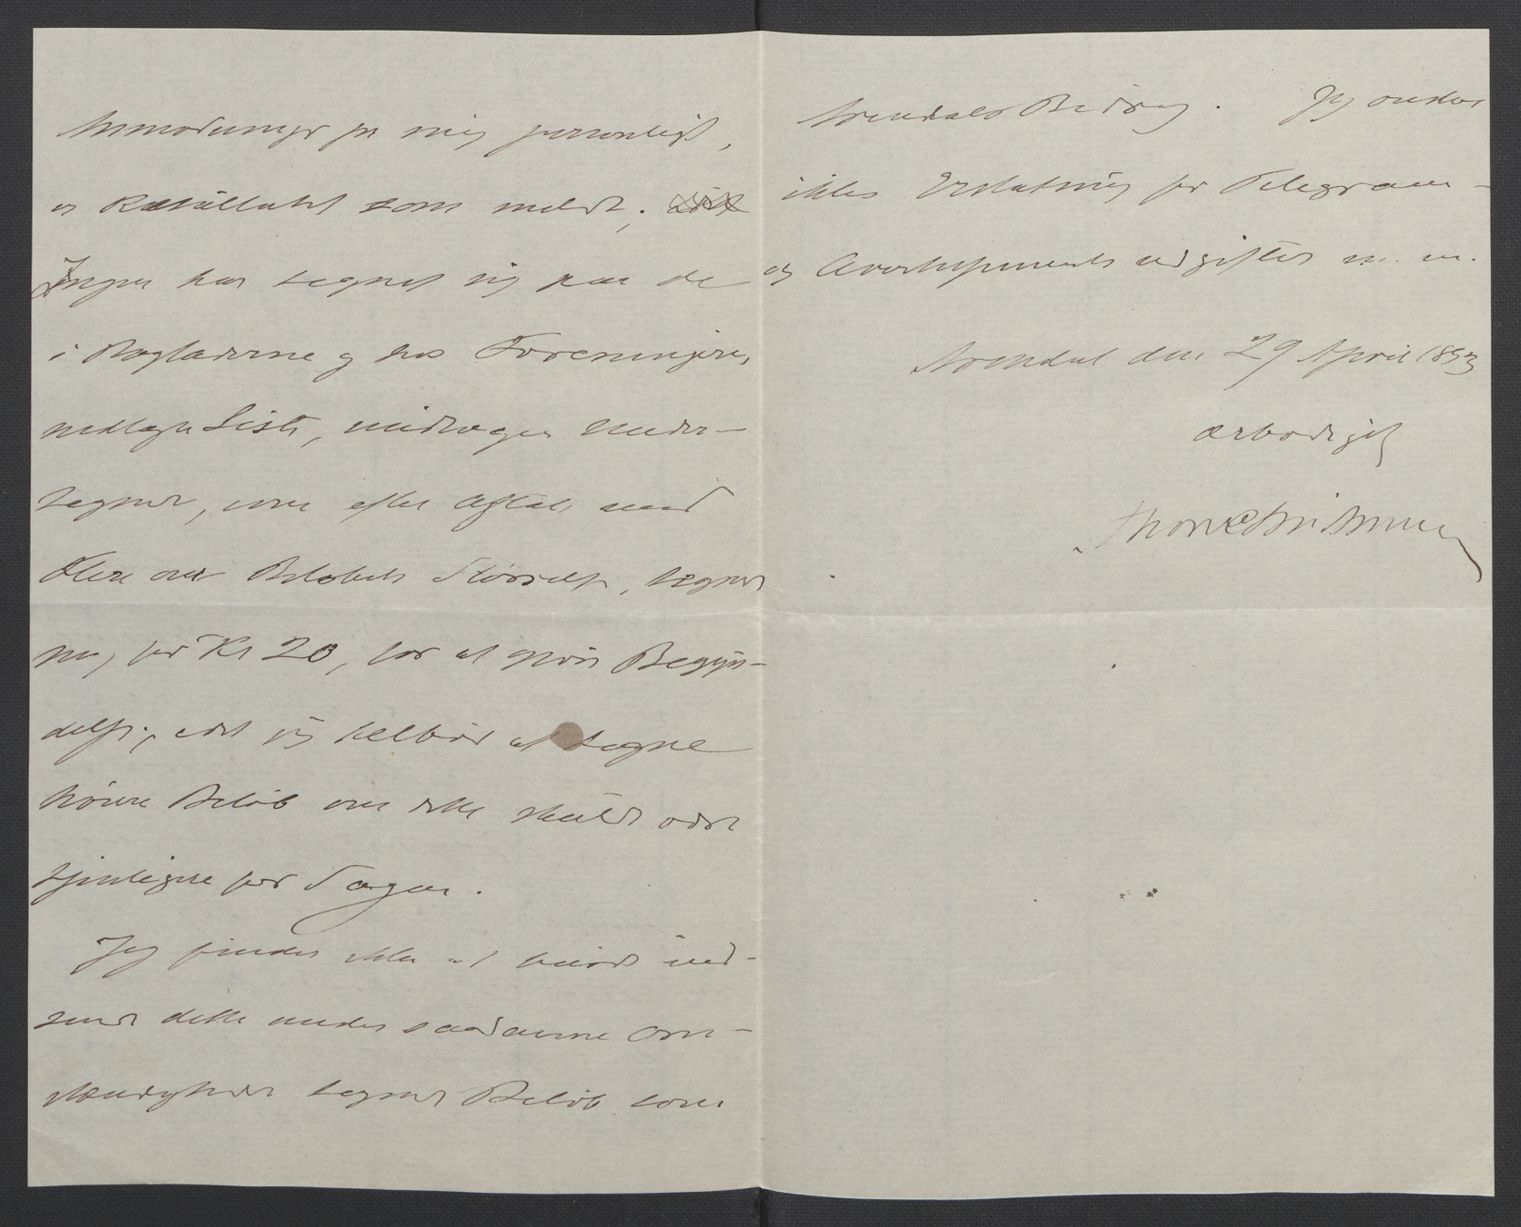 Anmodninger fra mig personligt,
er Resultatet som meldt;
Ingen har tegnet sig paa de
i Bogladerne og hos Foreningens
nedlagte Liste, undtagen Under-
tegnede, som efter Aftale med
Flere om Beløbets Størrelse, tegnet
mig for Kr 20, for at gjøre Begyn-
delse, idet jeg tilbød at tegne
større Beløb om dette skulde være
tjenligere for Sagen.
Jeg finder ikke at burde ind-
sende dette under saadanne Om-
stændigheder tegnede Beløb som
Arendals Bidrag. Jeg ønsker
ikke Erstatning for Telegram-
og Avertissements udgifter m. m.
Arendal den 29 April 1893
ærbødigst